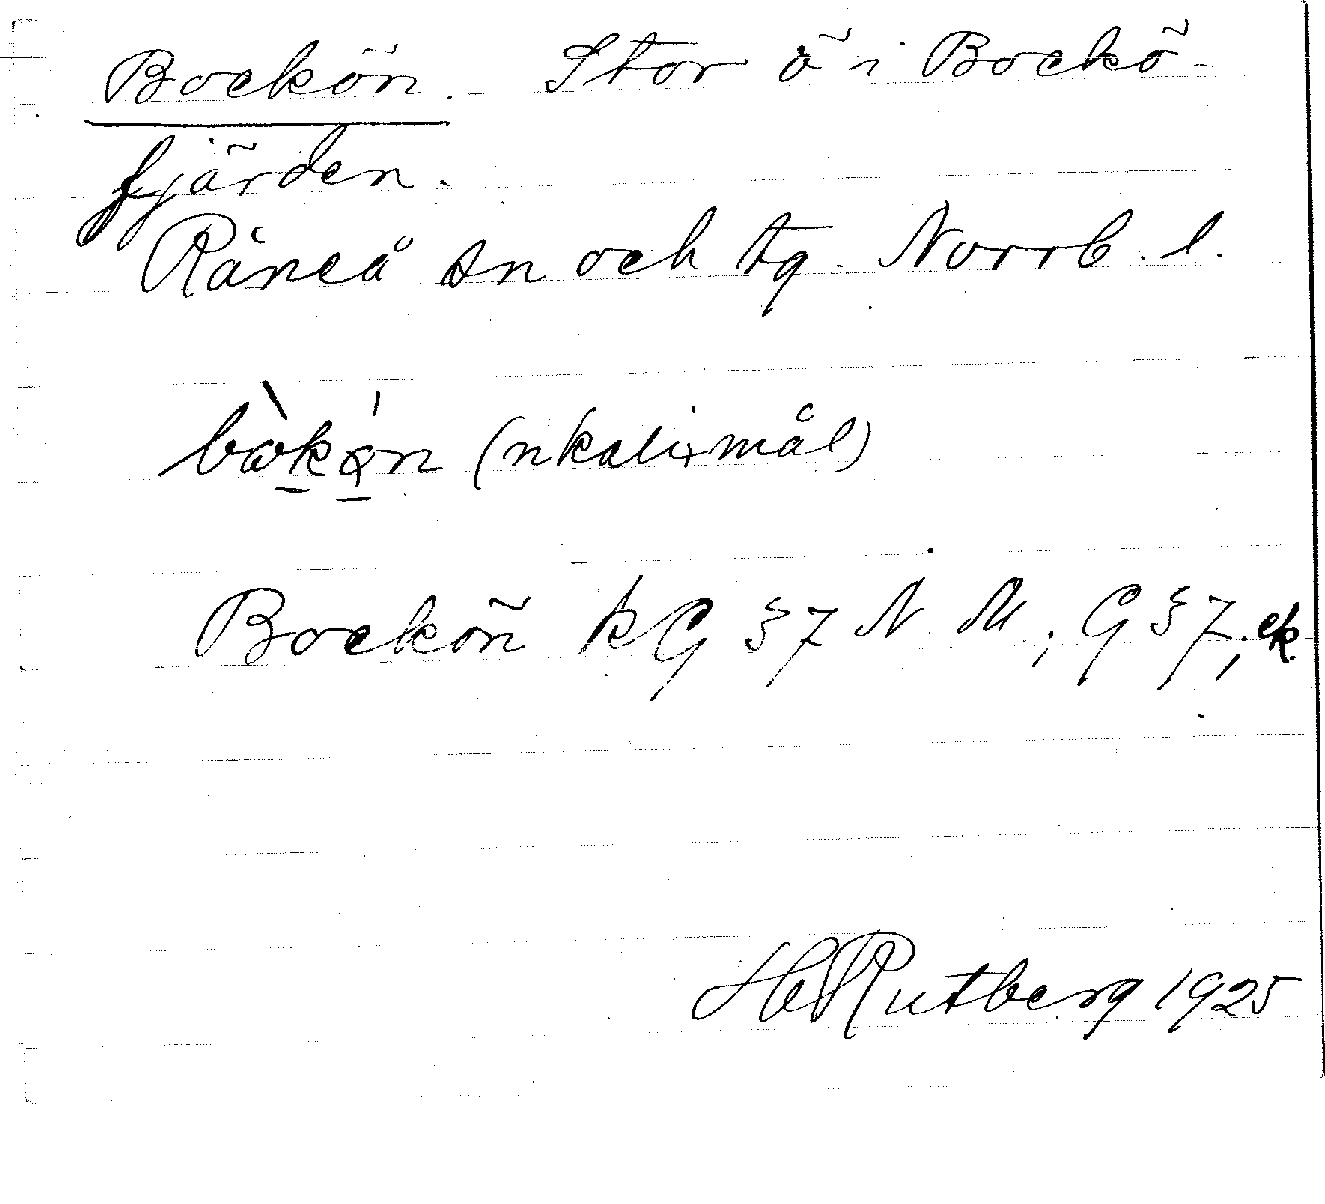 Bockön. Stor ö i Bockö-
fjärden.
Råneå sn och tg. Norrb. l.
(nkalixmål)
Bockön kG 37 N. M; G 37, ek.
H Rutberg 1925